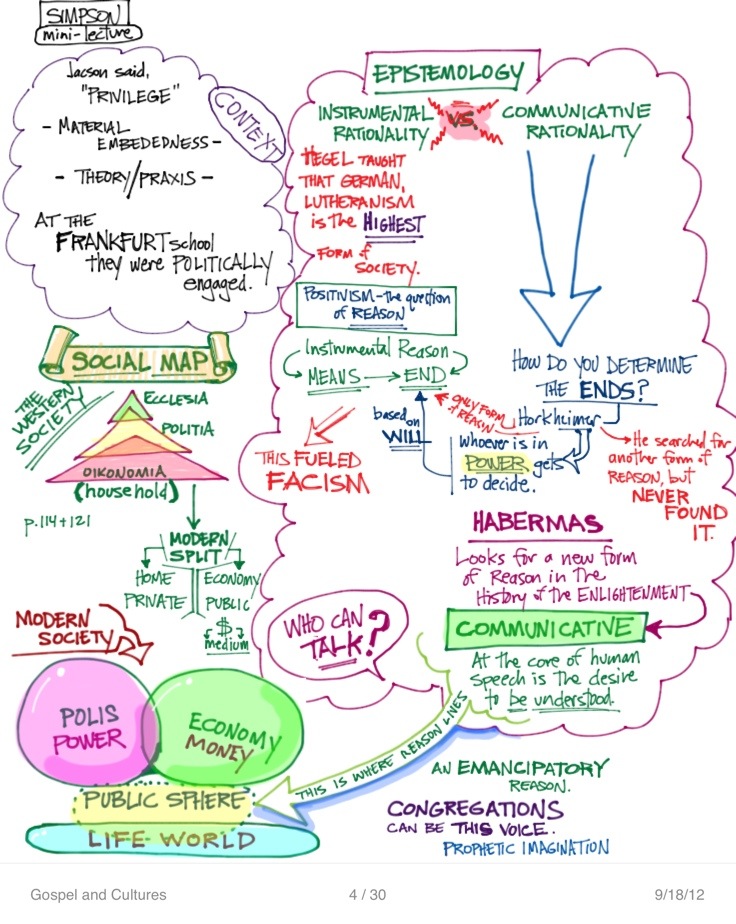 SIMPSON
mini-lecture
Jacson said,
"PRIVILEGE"
- MATERIAL
EMBEDEDNESS -
- THEORY/PRAXIS -
AT THE
FRANKFURT school
they were POLITICALLY
engaged.
CONTEXT
EPISTEMOLOGY
INSTRUMENTAL
RATIONALITY
VS.
COMMUNICATIVE
RATIONALITY
HEGEL TAUGHT
THAT GERMAN,
LUTHERANISM
is the HIGHEST
FORM of
SOCIETY.
POSITIVISM - the question
of REASON
Instrumental Reason
MEANS → END
based
on
WILL
THIS FUELED
FACISM
HOW DO YOU DETERMINE
THE ENDS?
Horkheimer
ONLY FORM
of REASON
whoever is in
POWER gets
to decide.
He searched for
another form of
REASON, but
NEVER
FOUND
IT.
HABERMAS
Looks for a new form
of Reason in the
History of the ENLIGHTENMENT
COMMUNICATIVE
At the core of human
speech is the desire
to be understood.
WHO CAN
TALK?
SOCIAL MAP
THE
WESTERN
SOCIETY
ECCLESIA
POLITIA
OIKONOMIA
(household)
p.114+121
MODERN
SPLIT
HOME
PRIVATE
ECONOMY
PUBLIC
$
medium
MODERN
SOCIETY
POLIS
POWER
ECONOMY
MONEY
PUBLIC SPHERE
LIFE-WORLD
THIS IS WHERE REASON LIVES
AN EMANCIPATORY
REASON.
CONGREGATIONS
CAN BE THIS VOICE.
PROPHETIC IMAGINATION
Gospel and Cultures
4 / 30
9/18/12